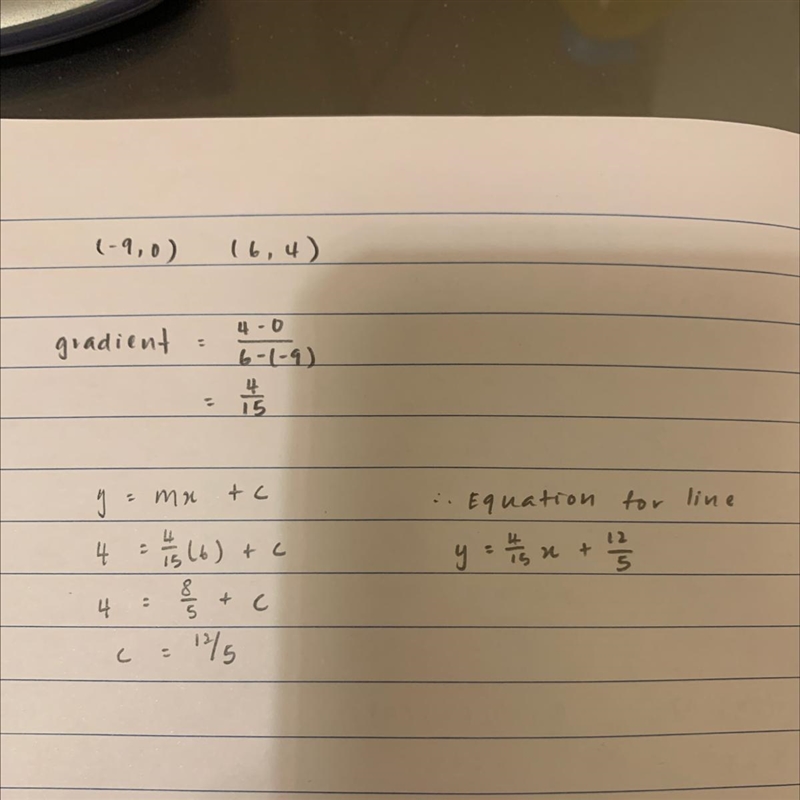 (-9,0) (6,4)
gradient = \frac{4-0}{6-(-9)}
= \frac{4}{15}
y = mx + c
4 = \frac{4}{15}(6) + c
4 = \frac{8}{5} + c
c = 12/5
∴ Equation for line
y = \frac{4}{15}x + \frac{12}{5}